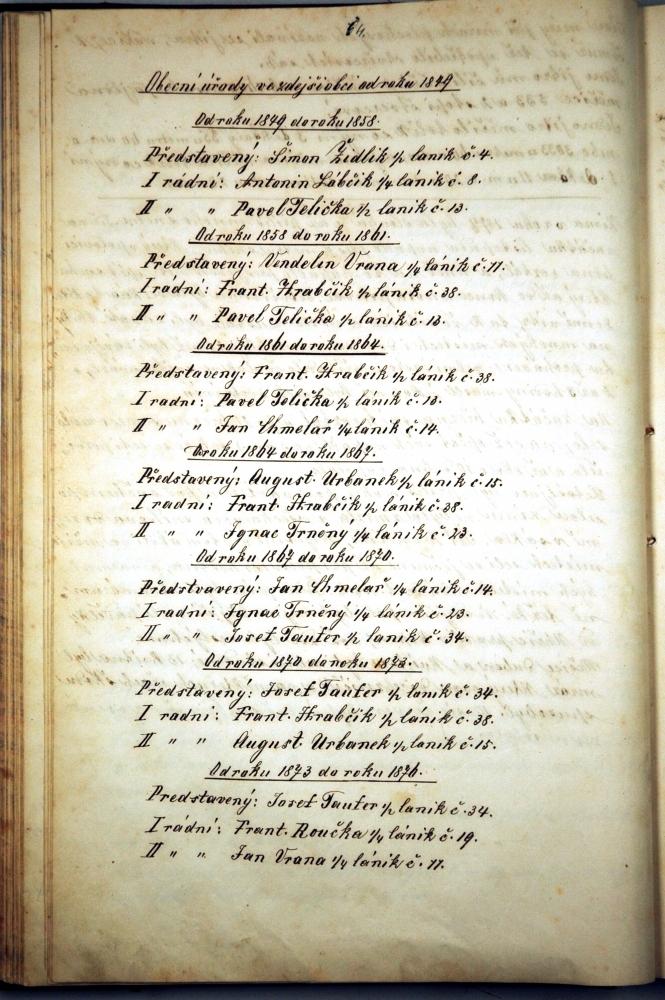 64.
Obecní úřady ve zdejší obci od roku 1849
Od roku 1849 do roku 1858.
Představený: Šimon Židlik ½ lanik č. 4.
I rádní: Antonin Lábčik ¼ lánik č. 8.
II „ „ Pavel Telička ½ lanik č. 13.
Od roku 1858 do roku 1861.
Představený: Vendelin Vrana ¼ lánik č. 11.
I radní: Frant. Hrabčik ½ lánik č. 38.
II „ „ Pavel Telička ½ lánik č. 13.
Od roku 1861 do roku 1864.
Představený: Frant. Hrabčik ½ lánik č. 38.
I radní: Pavel Telička ½ lánik č. 13.
II „ „ Jan Chmelař ¼ lánik č. 14.
Od roku 1864 do roku 1867.
Představený: August. Urbanek ½ lánik č. 15.
I radní: Frant. Hrabčik ½ lánik č. 38.
II „ „ Ignac Trněný ¼ lánik č. 23.
Od roku 1867 do roku 1870.
Předstvavený: Jan Chmelař ¼ lánik č. 14.
I radní: Ignac Trněný ¼ lánik č. 23.
II „ „ Josef Taufer ½ lanik č. 34.
Od roku 1870 do roku 1873.
Představený: Josef Taufer ½ lanik č. 34.
I radní: Frant. Hrabčik ½ lánik č. 38.
II „ „ August. Urbanek ½ lanik č. 15.
Od roku 1873 do roku 1876.
Predstavený: Josef Taufer ½ lanik č. 34.
I rádní: Frant. Roučka ¼ lánik č. 19.
II „ „ Jan Vrana ¼ lánik č. 11.